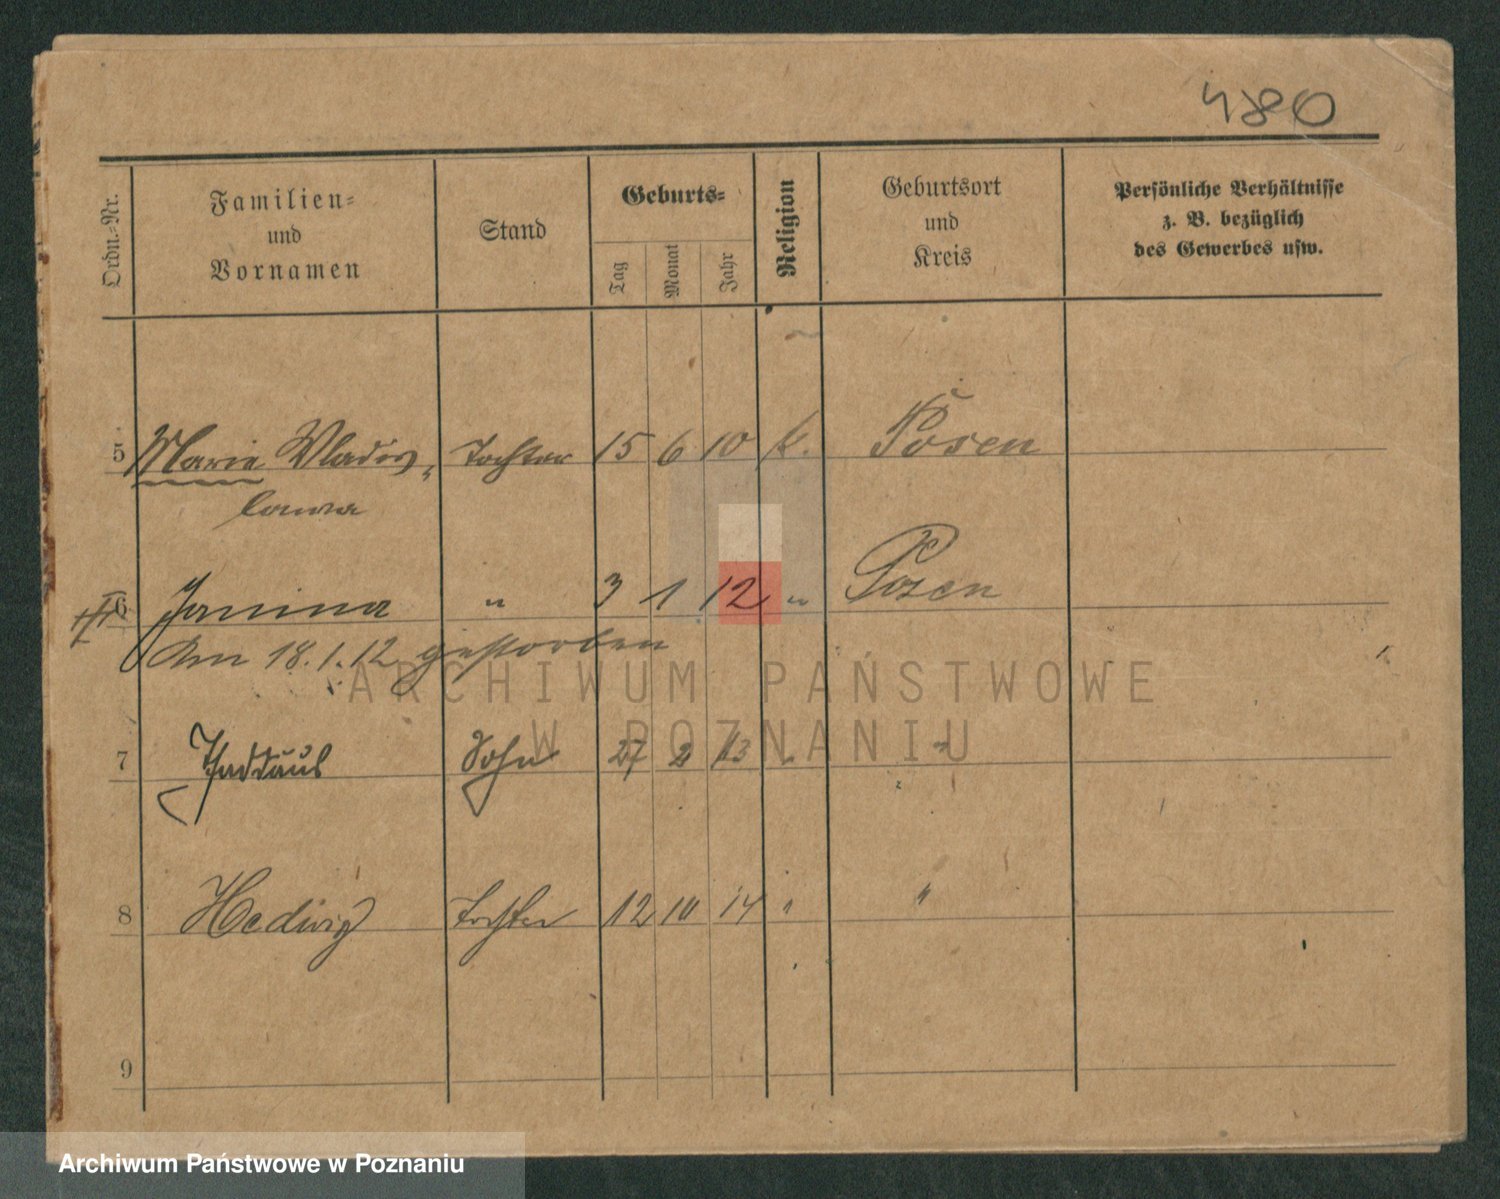 4780
Ordn.-Nr.
Familien-
und
Vornamen
Stand
Geburts-
Tag
Monat
Jahr
Religion
Geburtsort
und
Kreis
Persönliche Verhältnisse
z. B. bezüglich
des Gewerbes usw.
5 Marie Wladis- Tochter 15 6 10 k. Posen
lawa
6 Janina " 3 1 12 " Posen
Am 18.1.12 gestorben
ARCHIWUM PAŃSTWOWE
W POZNANIU
7 Thaddäus Sohn 27 2 13 " "
8 Hedwig Tochter 12 10 14 " "
9
Archiwum Państwowe w Poznaniu